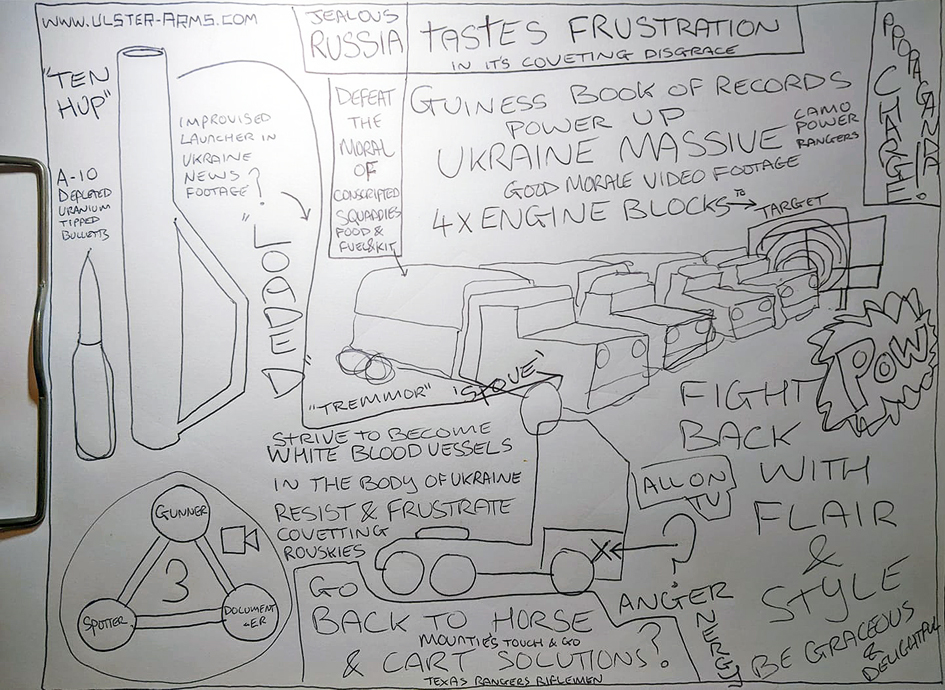 WWW.ULSTER-ARMS.COM
JEALOUS
RUSSIA
TASTES FRUSTRATION
IN IT'S COVETING DISGRACE
PPORAGANDA!
CHARGE!
"TEN
HUP"
IMPROVISED
LAUCHER IN
UKRAINE
NEWS
FOOTAGE?
"LOADED"
A-10
DEPLETED
URANIUM
TIPPED
BULLETTS
DEFEAT
THE
MORAL
OF
CONSCRIPTED
SQUADDIES
FOOD &
FUEL&KIT
GUINESS BOOK OF RECORDS
POWER UP
UKRAINE MASSIVE
CAMO
POWER
RANGERS
GOOD MORALE VIDEO FOOTAGE
4X ENGINE BLOCKS TO
TARGET
POW
"TREMMOR" 'SPOVE'
STRIVE TO BECOME
WHITE BLOOD VESSELS
IN THE BODY OF UKRAINE
RESIST & FRUSTRATE
COVETTING
ROUSKIES
FIGHT
BACK
WITH
FLAIR
&
STYLE
BE GRACEOUS
&
DELIGHTFUL
ALL ON
TV
?
X
ANGER
ENERGY
GUNNER
3
SPOTTER
DOCUMENT
-ER
GO
BACK TO HORSE
MOUNTIES TOUCH & GO
& CART SOLUTIONS?
TEXAS RANGERS RIFLEMEN